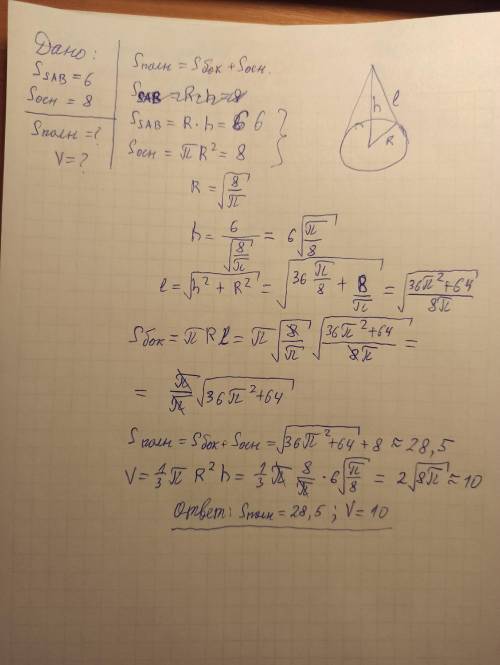 Дано:
S_SAB = 6
S_осн = 8
S_полн = ?
V = ?
S_полн = S_бок + S_осн.
S_SAB = R·h = 8
S_SAB = R·h = 6 6
S_осн = πR² = 8
h
l
R
R = √(8/π)
h = 6/√(8/π) = 6√(π/8)
l = √(h² + R²) = √(36 π/8 + 8/π) = √((36π² + 64)/8π)
S_бок = πRl = π √(8/π) √((36π² + 64)/8π) =
= π/π √(36π² + 64)
S_полн = S_бок + S_осн = √(36π² + 64) + 8 ≈ 28,5
V = 1/3 π R² h = 1/3 π 8/π · 6√(π/8) = 2√(8π) ≈ 10
Ответ: S_полн = 28,5 ; V = 10